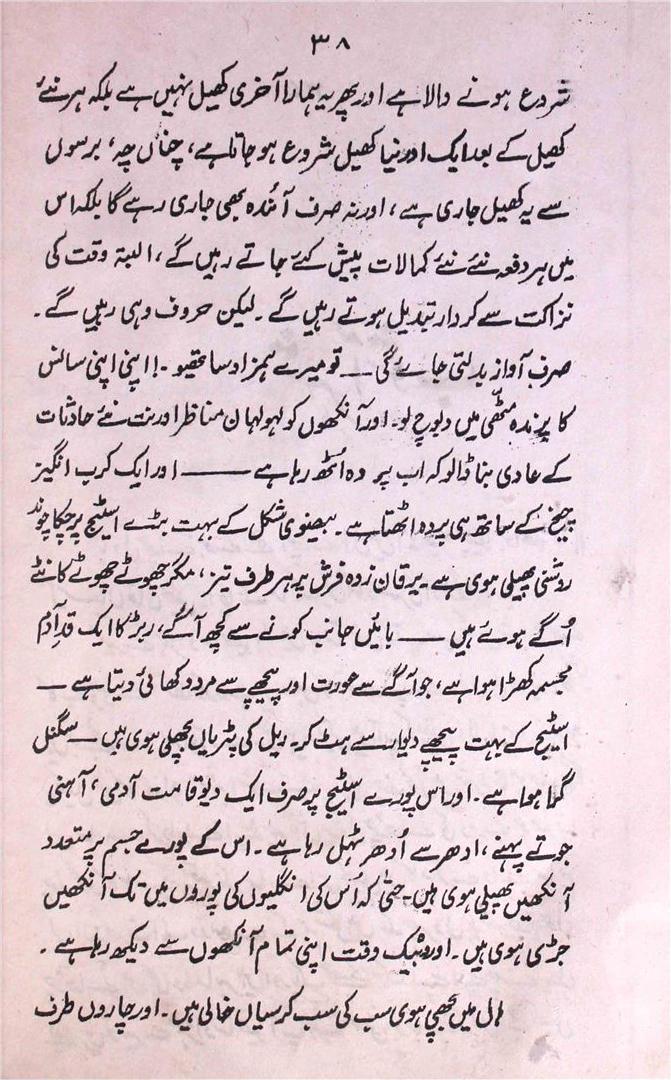 ۳۸
شروع ہونے والا ہے اور پھر یہ ہمارا آخری کھیل نہیں ہے بلکہ ہر نئے
کھیل کے بعد ایک اور نیا کھیل شروع ہو جاتا ہے، چناں چہ، برسوں
سے یہ کھیل جاری ہے، اور نہ صرف آئندہ بھی جاری رہے گا بلکہ اس
میں ہر دفعہ نئے نئے کمالات پیش کئے جاتے رہیں گے، البتہ وقت کی
نزاکت سے کردار تبدیل ہوتے رہیں گے۔ لیکن حروف وہی رہیں گے۔
صرف آواز بدلتی جائے گی ــــ تو میرے ہمزاد ساتھیو۔! اپنی اپنی سانس
کا پرندہ مٹھی میں دبوچ لو۔ اور آنکھوں کو لہولہان مناظر اور نت نئے حادثات
کے عادی بنا ڈالو کہ اب پردہ اُٹھ رہا ہے ــــــــ اور ایک کرب انگیز
چیخ کے ساتھ ہی پردہ اٹھتا ہے۔ بیضوی شکل کے بہت بڑے اسٹیج پر چکا چوند
روشنی پھیلی ہوی ہے۔ یرقان زدہ فرش پر ہر طرف تیز، مگر چھوٹے چھوٹے کانٹے
اُگے ہوئے ہیں ــــ بائیں جانب کونے سے کچھ آگے، ربڑ کا ایک قدِ آدم
مجسمہ کھڑا ہوا ہے، جو آگے سے عورت اور پیچھے سے مرد دکھائی دیتا ہے ــــ
اسٹیج کے بہت پیچھے دیوار سے ہٹ کر۔ ریل کی پٹریاں بچھی ہوی ہیں ــــ سگنل
گرا ہوا ہے۔ اور اس پورے اسٹیج پر صرف ایک دیو قامت آدمی، آہنی
جوتے پہنے، ادھر سے اُدھر ٹہل رہا ہے۔ اس کے پورے جسم پر متعدد
آنکھیں پھیلی ہوی ہیں۔ حتیٰ کہ اُس کی انگلیوں کی پوروں میں تک آنکھیں
جڑی ہوی ہیں۔ اور وہ بیک وقت اپنی تمام آنکھوں سے دیکھ رہا ہے۔
ہال میں بچھی ہوی سب کی سب کرسیاں خالی ہیں۔ اور چاروں طرف